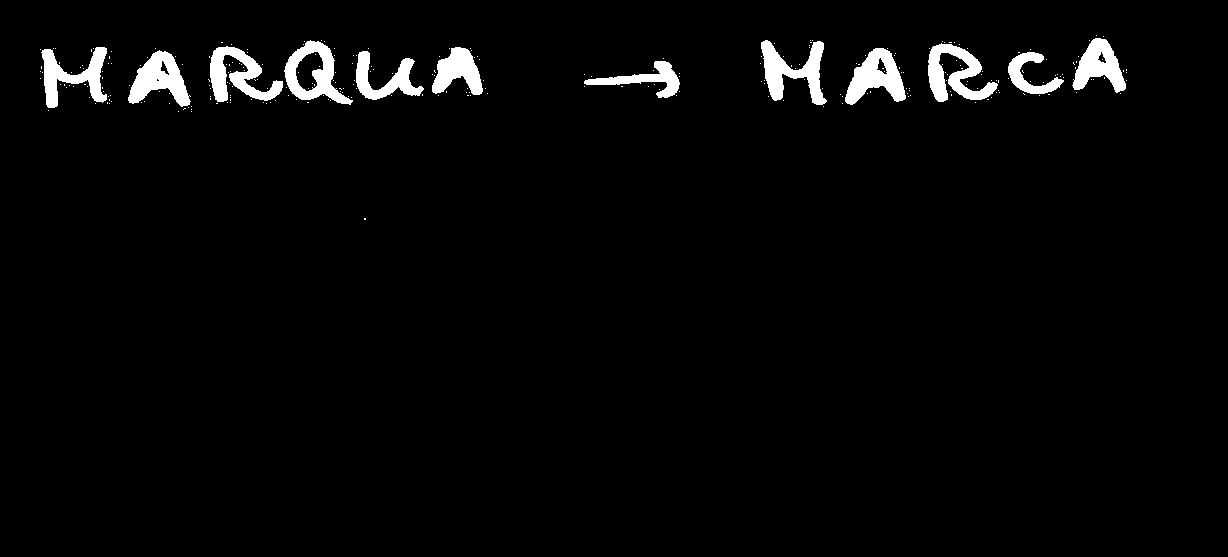 MARQUA → MARCA